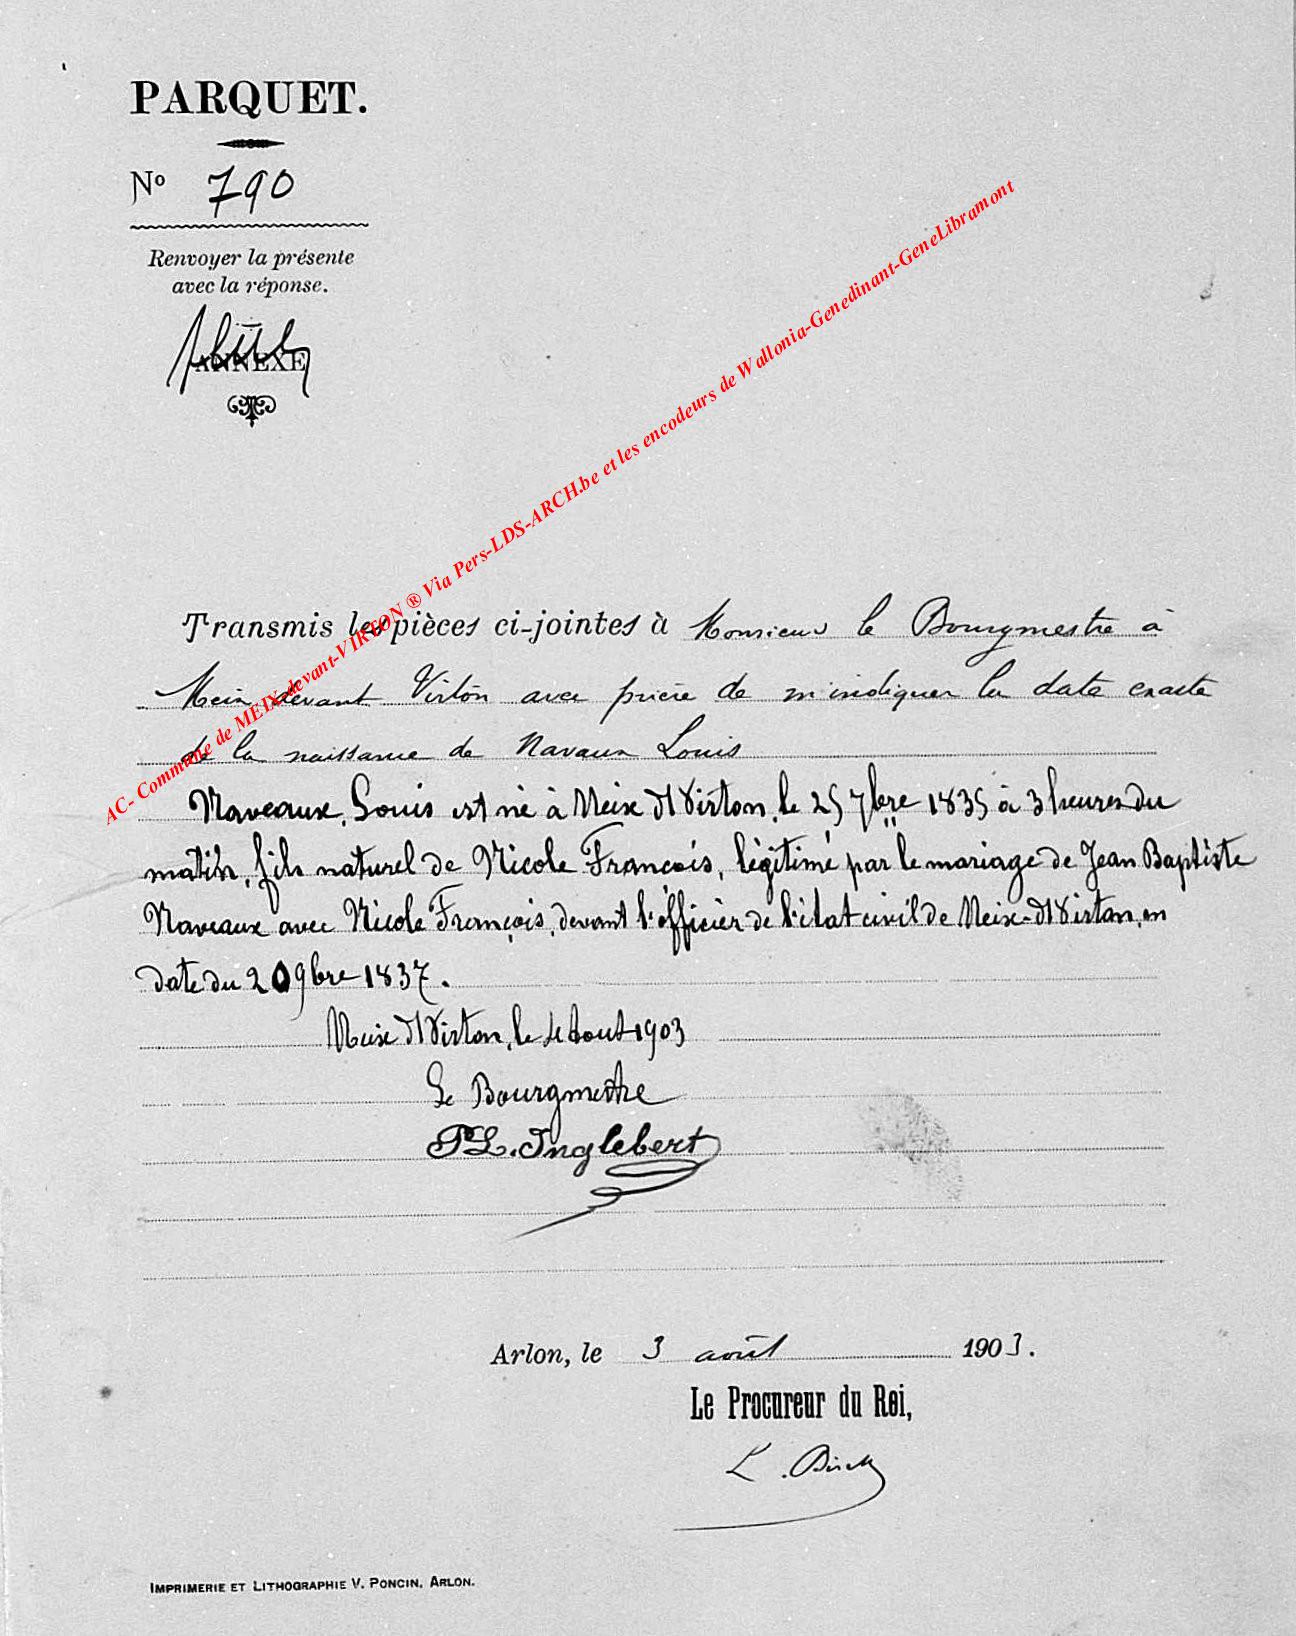 PARQUET.
No 790
Renvoyer la présente
avec la réponse.
ANNEXE
AC- Commune de MEIX-devant-VIRTON ® Via Pers-LDS-ARCH.be et les encodeurs de Wallonia-Genedinant-GeneLibramont
Transmis les pièces ci-jointes à Monsieur le Bourgmestre à
Meix devant Virton avec prière de m'indiquer la date exacte
de la naissance de Navaux Louis
Naveaux, Louis est né à Meix dt Virton, le 25 7bre 1835 à 3 heures du
matin, fils naturel de Nicole François, légitimé par le mariage de Jean Baptiste
Naveaux avec Nicole François, devant l'officier de l'état civil de Meix-dt Virton, en
date du 20 9bre 1837.
Meix dt Virton, le 4 Aout 1903
Le Bourgmestre
PL. Inglebert
Arlon, le 3 août 1903.
Le Procureur du Roi,
L.
IMPRIMERIE ET LITHOGRAPHIE V. PONCIN, ARLON.